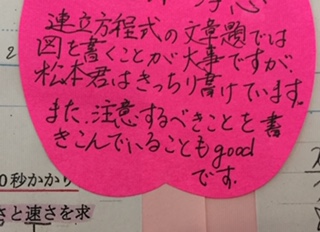 連立方程式の文章題では
図を書くことが大事ですが、
松本君はきっちり書けています。
また、注意するべきことを書
きこんでいることもgood
です。
2
0秒かかり
さと速さを求